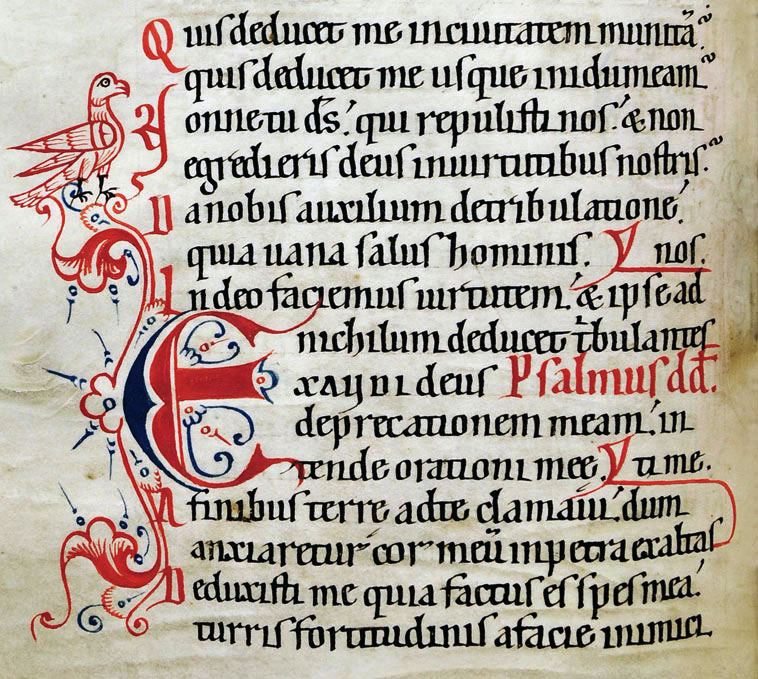 Quis deducet me inciuitatem munitā.
quis deducet me usque inidumeam
Nonne tu ds̄. qui repulisti nos. & non
egredieris deus inuirtutibus nostris.
Da nobis auxilium detribulatione.
quia uana salus hominis. V nos.
In deo faciemus uirtutem. & ipse ad
nichilum deducet tribulantes
Exaudi deus Psalmus dd̄.
deprecationem meam. in
tende orationi mee. V ti me.
A finibus terre adte clamaui. dum
anxiaretur cor meū inpetra exaltas
Deduxisti me quia factus es spes mea.
turris fortitudinis afacie inimici